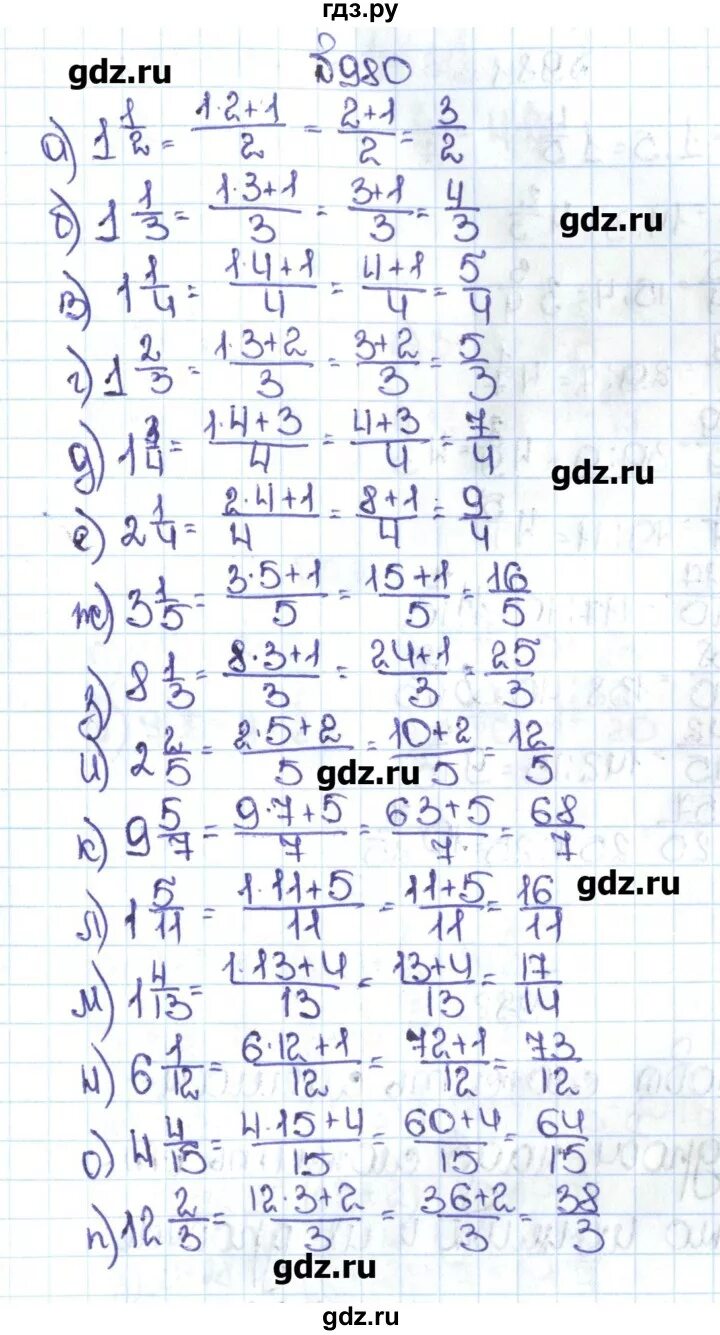 гдз.ру
№980
gdz.ru
а) 1 1/2 = (1·2+1)/2 = (2+1)/2 = 3/2
б) 1 1/3 = (1·3+1)/3 = (3+1)/3 = 4/3
gdz.ru
в) 1 1/4 = (1·4+1)/4 = (4+1)/4 = 5/4
г) 1 2/3 = (1·3+2)/3 = (3+2)/3 = 5/3
д) 1 3/4 = (1·4+3)/4 = (4+3)/4 = 7/4
gdz.ru
е) 2 1/4 = (2·4+1)/4 = (8+1)/4 = 9/4
ж) 3 1/5 = (3·5+1)/5 = (15+1)/5 = 16/5
з) 8 1/3 = (8·3+1)/3 = (24+1)/3 = 25/3
и) 2 2/5 = (2·5+2)/5 = (10+2)/5 = 12/5
gdz.ru
к) 9 5/7 = (9·7+5)/7 = (63+5)/7 = 68/7
gdz.ru
л) 1 5/11 = (1·11+5)/11 = (11+5)/11 = 16/11
м) 1 4/13 = (1·13+4)/13 = (13+4)/13 = 17/14
н) 6 1/12 = (6·12+1)/12 = (72+1)/12 = 73/12
о) 4 4/15 = (4·15+4)/15 = (60+4)/15 = 64/15
п) 12 2/3 = (12·3+2)/3 = (36+2)/3 = 38/3
gdz.ru
gdz.ru